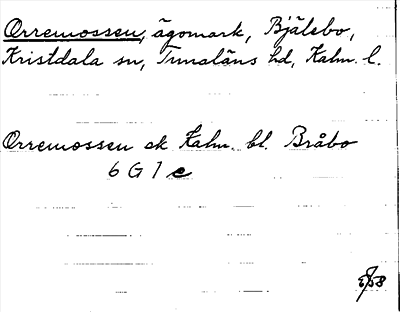 Orremossen, ägomark, Bjälebo,
Kristdala sn, Tunaläns hd, Kalm. l.
Orremossen ek Kalm. bl. Bråbo
6 G 1 e